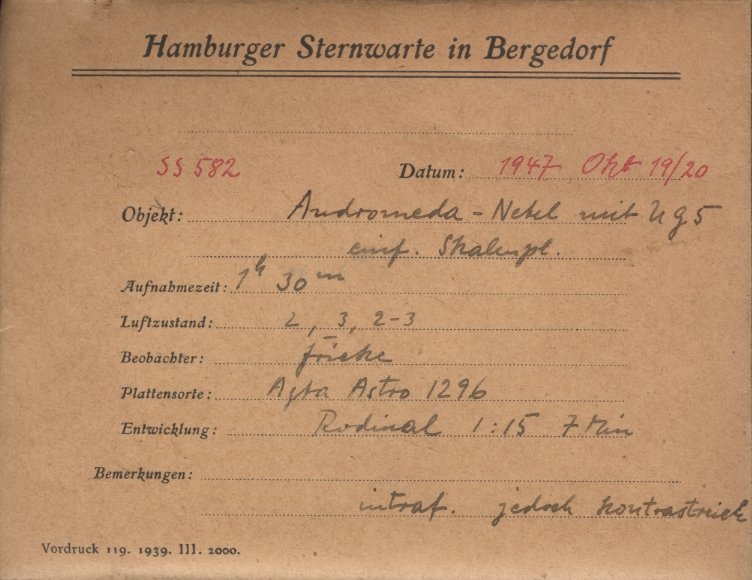 Hamburger Sternwarte in Bergedorf
SS 582 Datum: 1947 Okt 19/20
Objekt: Andromeda-Nebel mit UG5
einf. Skalenpl.
Aufnahmezeit: 1h 30m
Luftzustand: 2, 3, 2-3
Beobachter: Fricke
Plattensorte: Agfa Astro 1296
Entwicklung: Rodinal 1:15 7 Min
Bemerkungen:
intraf. jedoch kontrastreich
Vordruck 119. 1939. III. 2000.